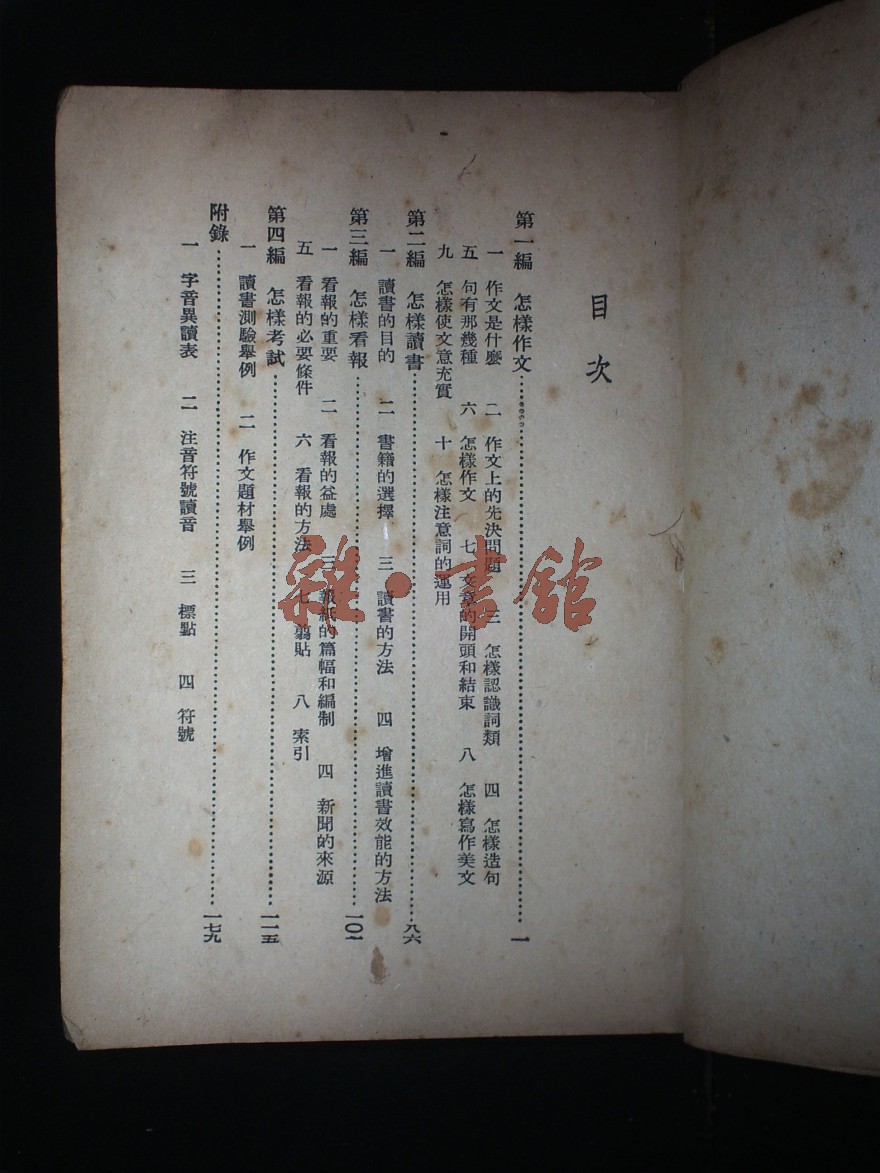 目次
第一編　怎樣作文…………一
一　作文是什麼　二　作文上的先決問題　三　怎樣認識詞類　四　怎樣造句
五　句有那幾種　六　怎樣作文　七　文章的開頭和結束　八　怎樣寫作美文
九　怎樣使文意充實　十　怎樣注意詞的運用
第二編　怎樣讀書…………八六
一　讀書的目的　二　書籍的選擇　三　讀書的方法　四　增進讀書效能的方法
第三編　怎樣看報…………一〇一
一　看報的重要　二　看報的益處　三　報紙的篇幅和編制　四　新聞的來源
五　看報的必要條件　六　看報的方法　七　剪貼　八　索引
第四編　怎樣考試…………一一五
一　讀書測驗舉例　二　作文題材舉例
附錄…………一七九
一　字音異讀表　二　注音符號讀音　三　標點　四　符號
雜·書館